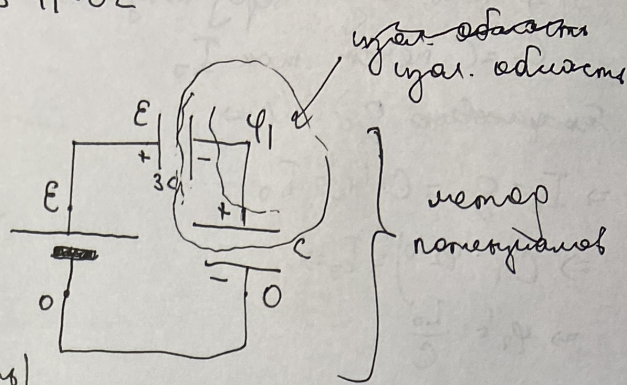 изол. область
изол. область
ε
φ₁
+
-
3C
ε
+
C
метод
потенциалов
-
0
0